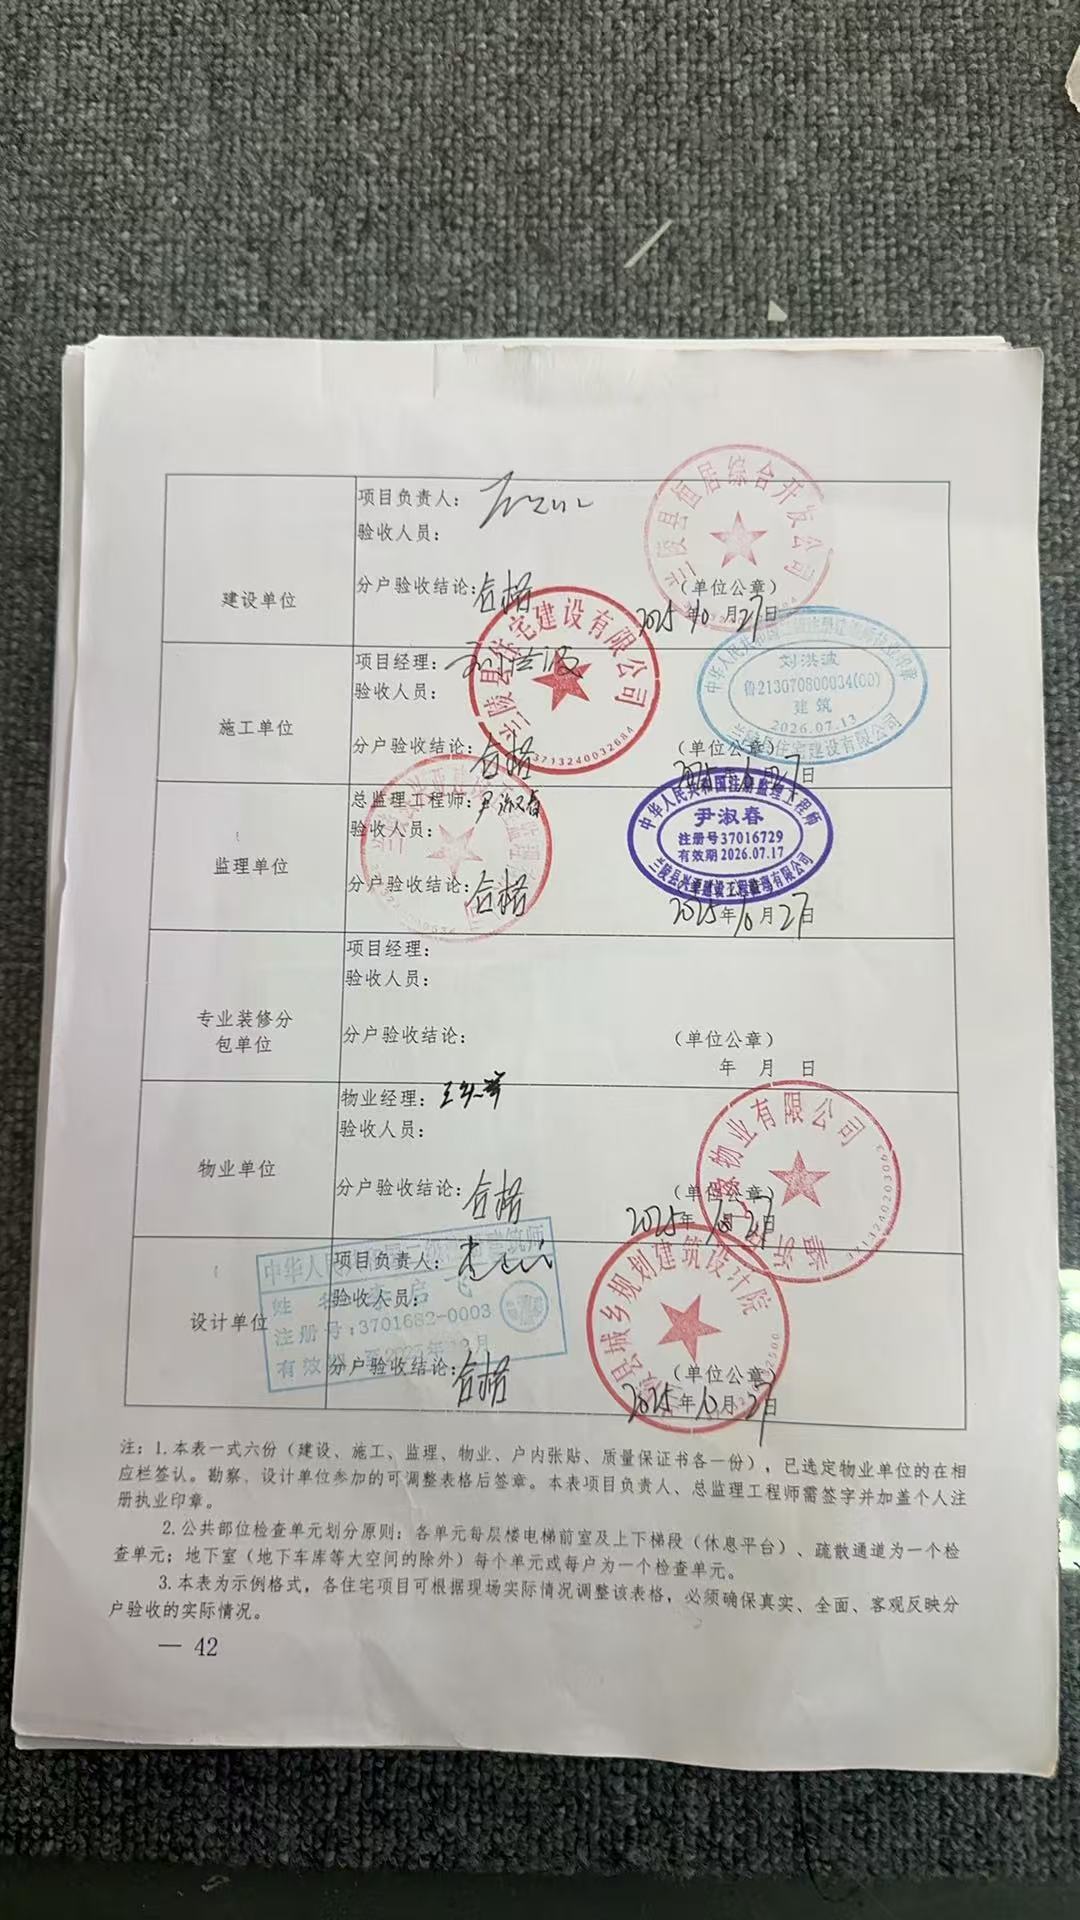 建设单位
项目负责人：
验收人员：
分户验收结论：合格
（单位公章）
2025年10月27日
兰陵县恒居综合开发公司
施工单位
项目经理：刘洪波
验收人员：
分户验收结论：合格
（单位公章）
2025年10月27日
兰陵县住宅建设有限公司
3713240032684
刘洪波
鲁213070800034(00)
建筑
2026.07.13
兰陵县住宅建设有限公司
监理单位
总监理工程师：尹淑春
验收人员：
分户验收结论：合格
2025年10月27日
中华人民共和国注册监理工程师
尹淑春
注册号37016729
有效期2026.07.17
专业装修分
包单位
项目经理：
验收人员：
分户验收结论：
（单位公章）
年 月 日
物业单位
物业经理：
验收人员：
分户验收结论：合格
（单位公章）
2025年10月27日
物业有限公司
3713240203063
设计单位
项目负责人：
验收人员：
分户验收结论：合格
（单位公章）
2025年10月27日
县城乡规划建筑设计院
注册号:3701682-0003
注：1.本表一式六份（建设、施工、监理、物业、户内张贴、质量保证书各一份），已选定物业单位的在相
应栏签认。勘察、设计单位参加的可调整表格后签章。本表项目负责人、总监理工程师需签字并加盖个人注
册执业印章。
2.公共部位检查单元划分原则：各单元每层楼电梯前室及上下梯段（休息平台）、疏散通道为一个检
查单元；地下室（地下车库等大空间的除外）每个单元或每户为一个检查单元。
3.本表为示例格式，各住宅项目可根据现场实际情况调整该表格，必须确保真实、全面、客观反映分
户验收的实际情况。
— 42